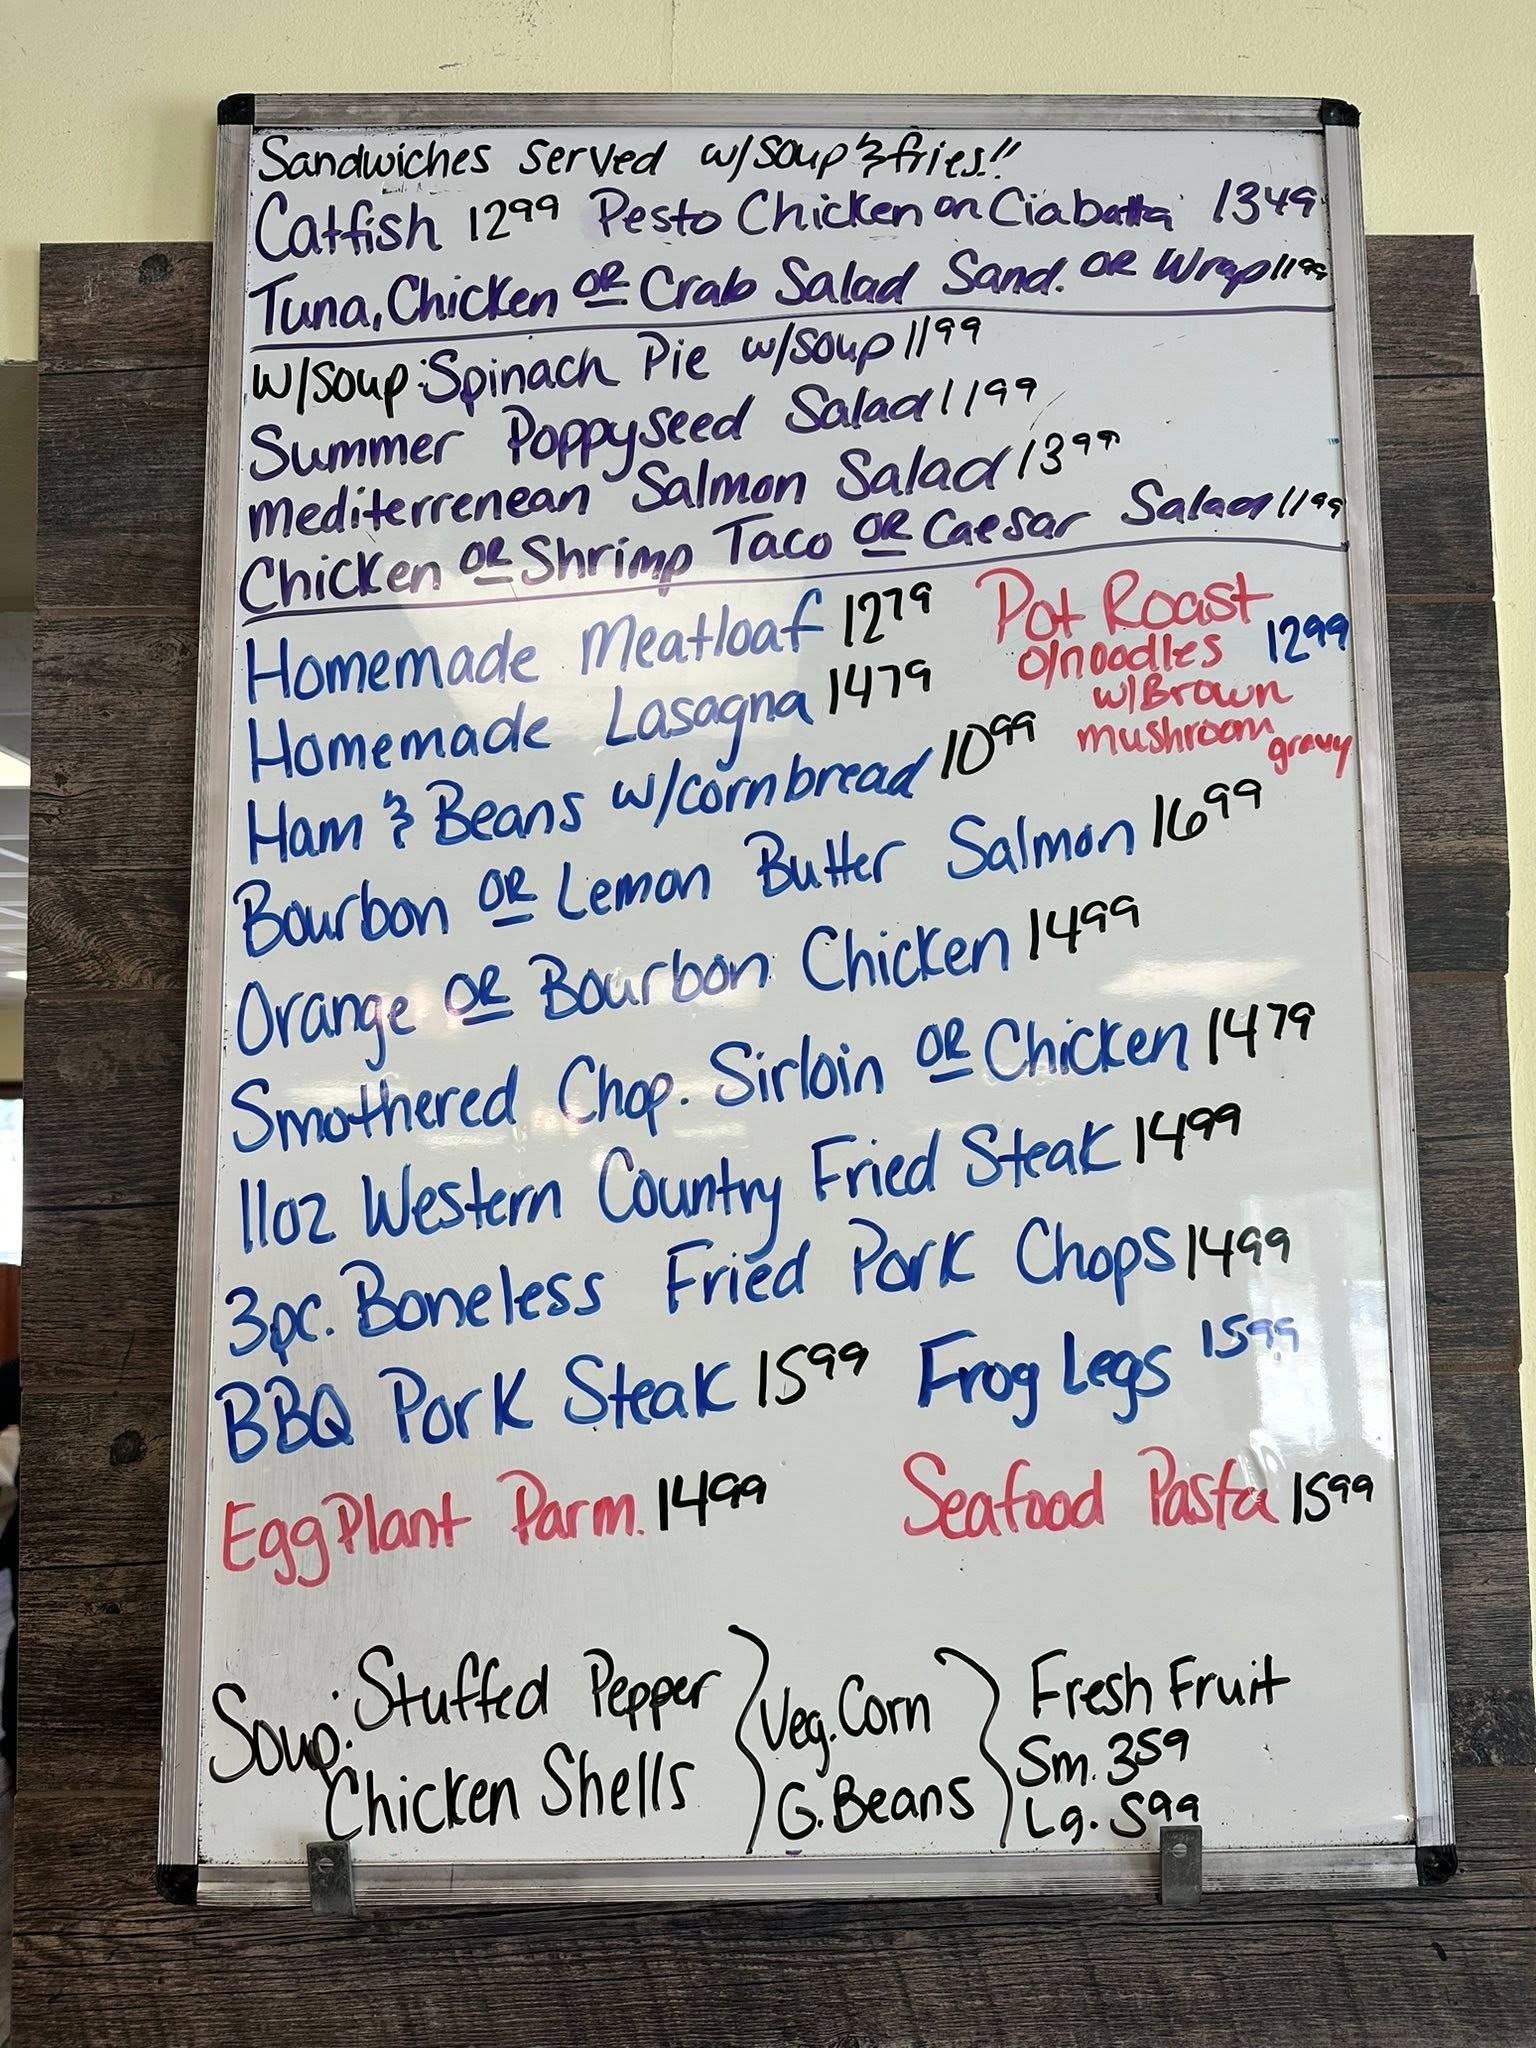 Sandwiches served w/soup & fries!!
Catfish 12⁹⁹ Pesto Chicken on Ciabatta 13⁴⁹
Tuna, Chicken OR Crab Salad Sand. OR Wrap 11⁹⁹
W/soup: Spinach Pie w/soup 11⁹⁹
Summer Poppyseed Salad 11⁹⁹
Mediterrenean Salmon Salad 13⁹⁹
Chicken OR Shrimp Taco OR Caesar Salad 11⁹⁹
Homemade Meatloaf 12⁷⁹
Homemade Lasagna 14⁷⁹
Pot Roast
o/noodles 12⁹⁹
w/Brown
mushroom gravy
Ham & Beans w/cornbread 10⁹⁹
Bourbon OR Lemon Butter Salmon 16⁹⁹
Orange OR Bourbon Chicken 14⁹⁹
Smothered Chop. Sirloin OR Chicken 14⁷⁹
11oz Western Country Fried Steak 14⁹⁹
3pc. Boneless Fried Pork Chops 14⁹⁹
BBQ Pork Steak 15⁹⁹ Frog Legs 15⁹⁹
EggPlant Parm. 14⁹⁹ Seafood Pasta 15⁹⁹
Soup: Stuffed Pepper
Chicken Shells
Veg. Corn
G. Beans
Fresh Fruit
Sm. 3⁵⁹
Lg. 5⁹⁹